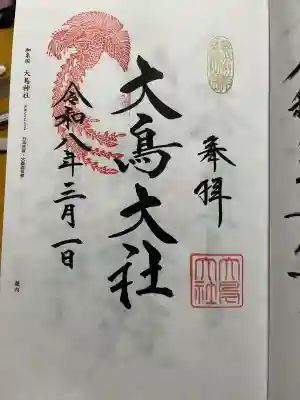 奉拝
大鳥大社
令和八年三月一日
大鳥
大社
和泉国 大鳥神社
境内